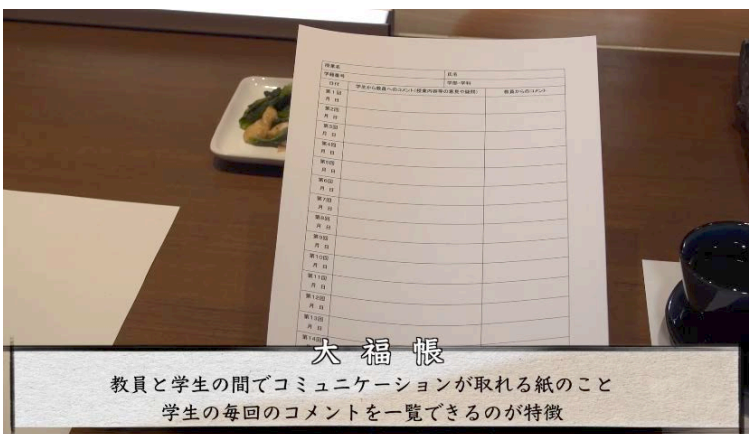 授業名
氏名
学籍番号
学部・学科
日付
学生から教員へのコメント(授業内容等の意見や疑問)
教員からのコメント
第1回
月 日
第2回
月 日
第3回
月 日
第4回
月 日
第5回
月 日
第6回
月 日
第7回
月 日
第8回
月 日
第9回
月 日
第10回
月 日
第11回
月 日
第12回
月 日
第13回
月 日
第14回
大福帳
教員と学生の間でコミュニケーションが取れる紙のこと
学生の毎回のコメントを一覧できるのが特徴